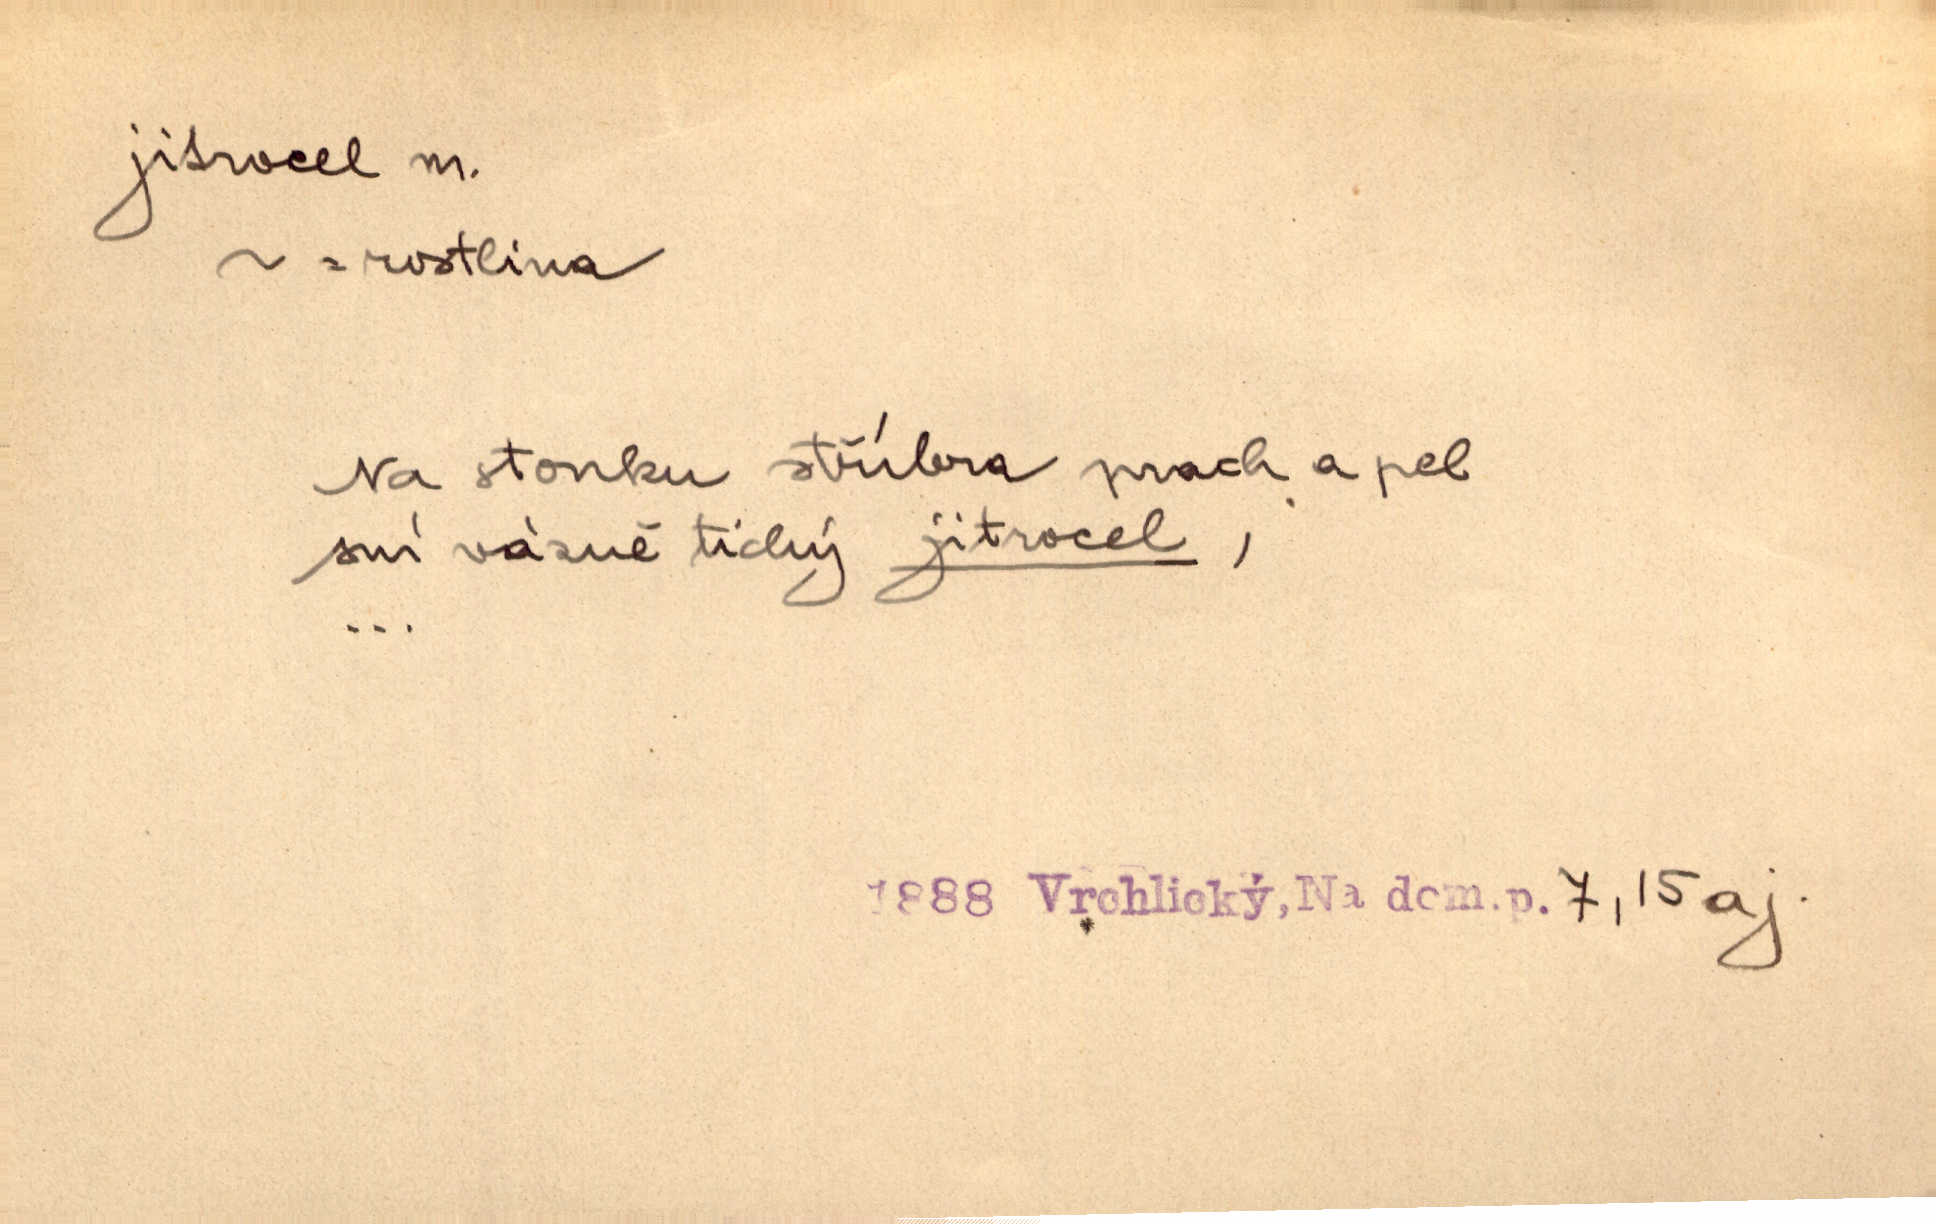 jitrocel m.
~ = rostlina
Na stonku stříbra prach a pel
sní vázně tichý jitrocel,
...
1888 Vrchlický, Na dom. p. 7, 15 aj.